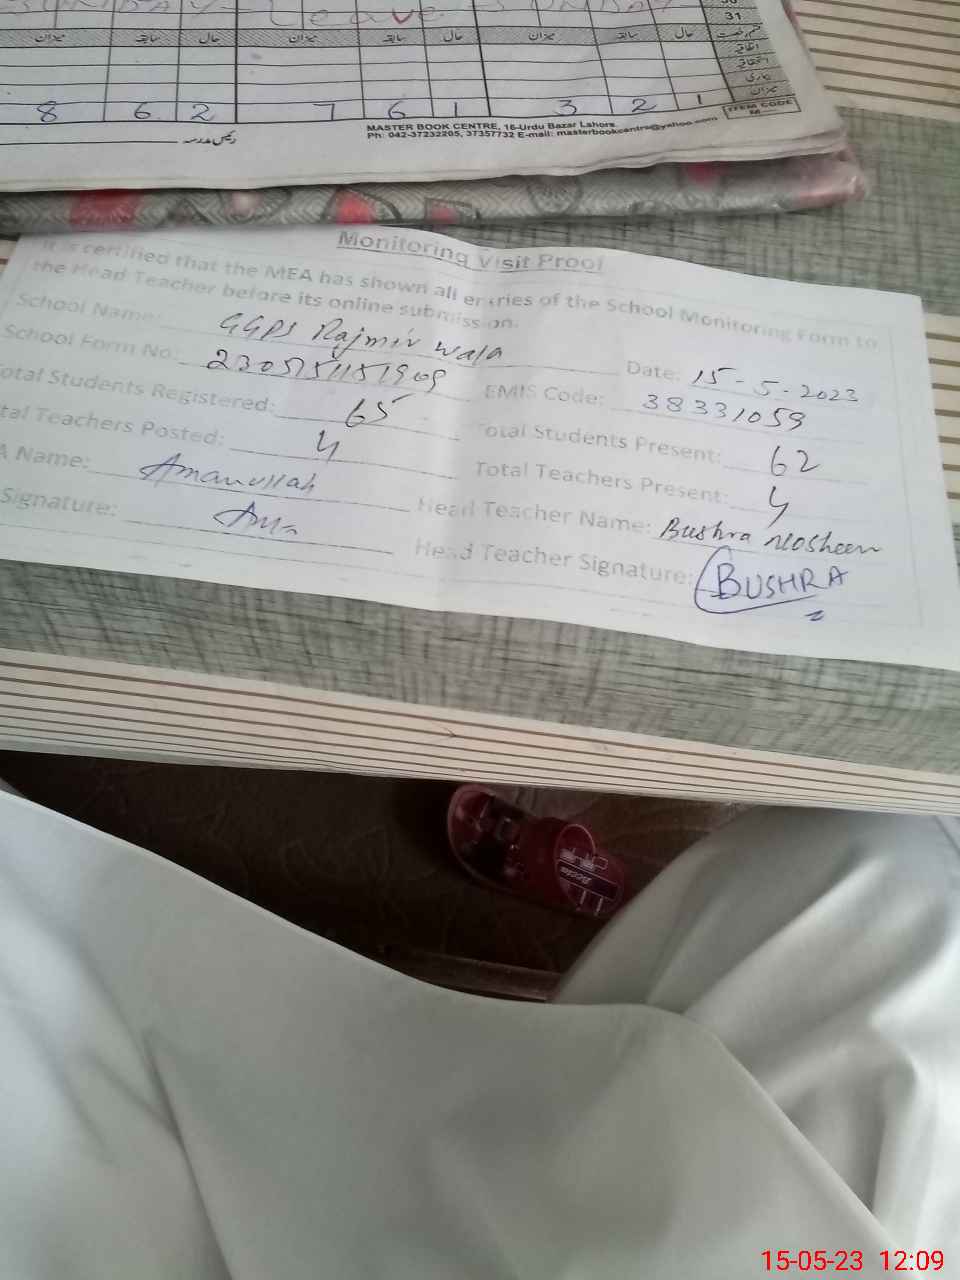 31
میزان سابقہ حال میزان سابقہ حال میزان سابقہ حال قسم رخصت
اتفاقیہ
استحقاقیہ
بیماری
میزان
8 6 2 7 6 1 3 2 1
ITEM CODE
MASTER BOOK CENTRE, 16-Urdu Bazar Lahore
Ph: 042-37232205, 37357732 E-mail: masterbookcentre@yahoo.com
Monitoring Visit Proof
It is certified that the MEA has shown all entries of the School Monitoring Form to
the Head Teacher before its online submission.
School Name: GGPS Rajmir wala Date: 15-5-2023
School Form No: EMIS Code: 38331059
otal Students Registered: 65 Total Students Present: 62
tal Teachers Posted: 4 Total Teachers Present: 4
A Name: Amanullah Head Teacher Name: Bushra nosheen
Signature: Head Teacher Signature: BUSHRA
15-05-23 12:09